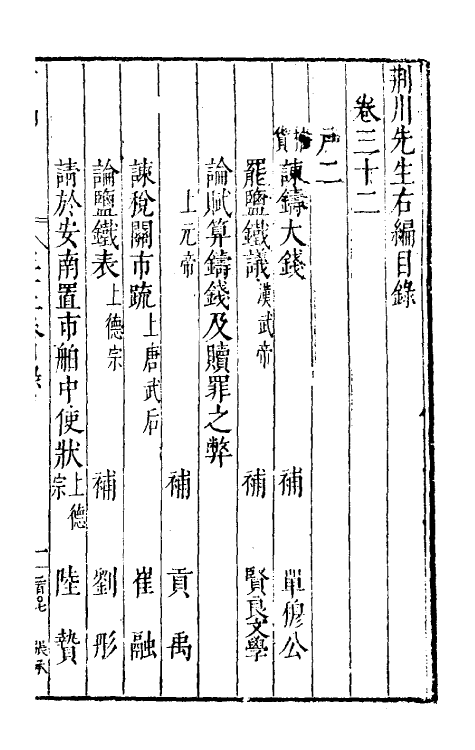 荆川先生右編目錄
卷三十二
户二
諫鑄大錢 補 單穆公
罷鹽鐵議 漢武帝 補 賢良文學
論賦算鑄錢及贖罪之弊
上元帝 補 貢禹
諫稅關市疏 上唐武后 崔融
論鹽鐵表 上德宗 補 劉彤
請於安南置市舶中使狀 上德宗 陸贄